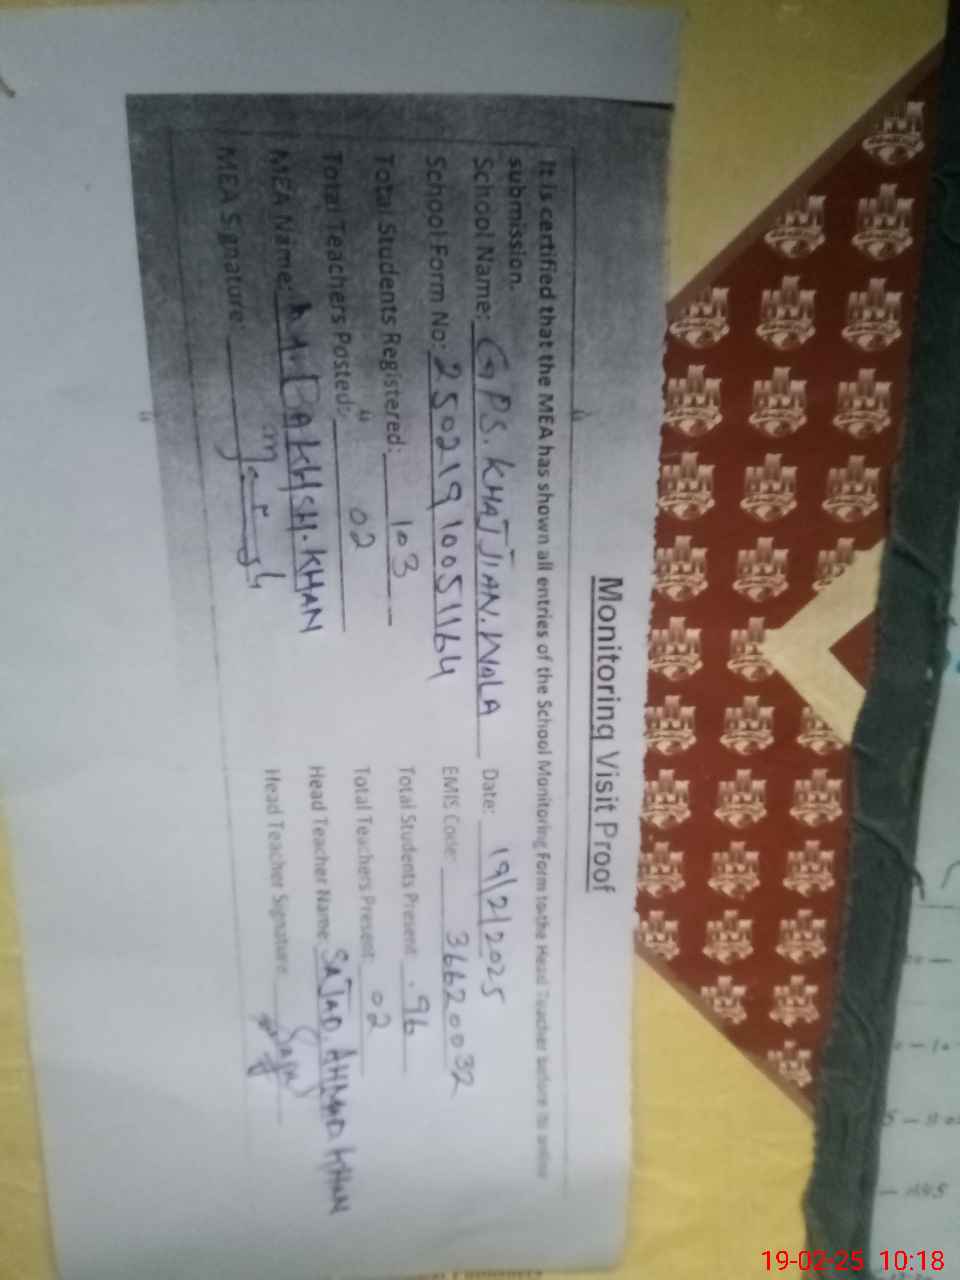 Monitoring Visit Proof
It is certified that the MEA has shown all entries of the School Monitoring Form to the Head Teacher before its online
submission.
School Name: GPS. KHAJJIAN. WALA Date: 19/2/2025
School Form No: 25021910051164 EMIS Code: 36620032
Total Students Registered: 103 Total Students Present: 96
Total Teachers Posted: 02 Total Teachers Present: 02
MEA Name: BAKHSH. KHAN Head Teacher Name: SAJAD. AHMAD. KHAN
MEA Signature: Head Teacher Signature
19-02-25 10:18